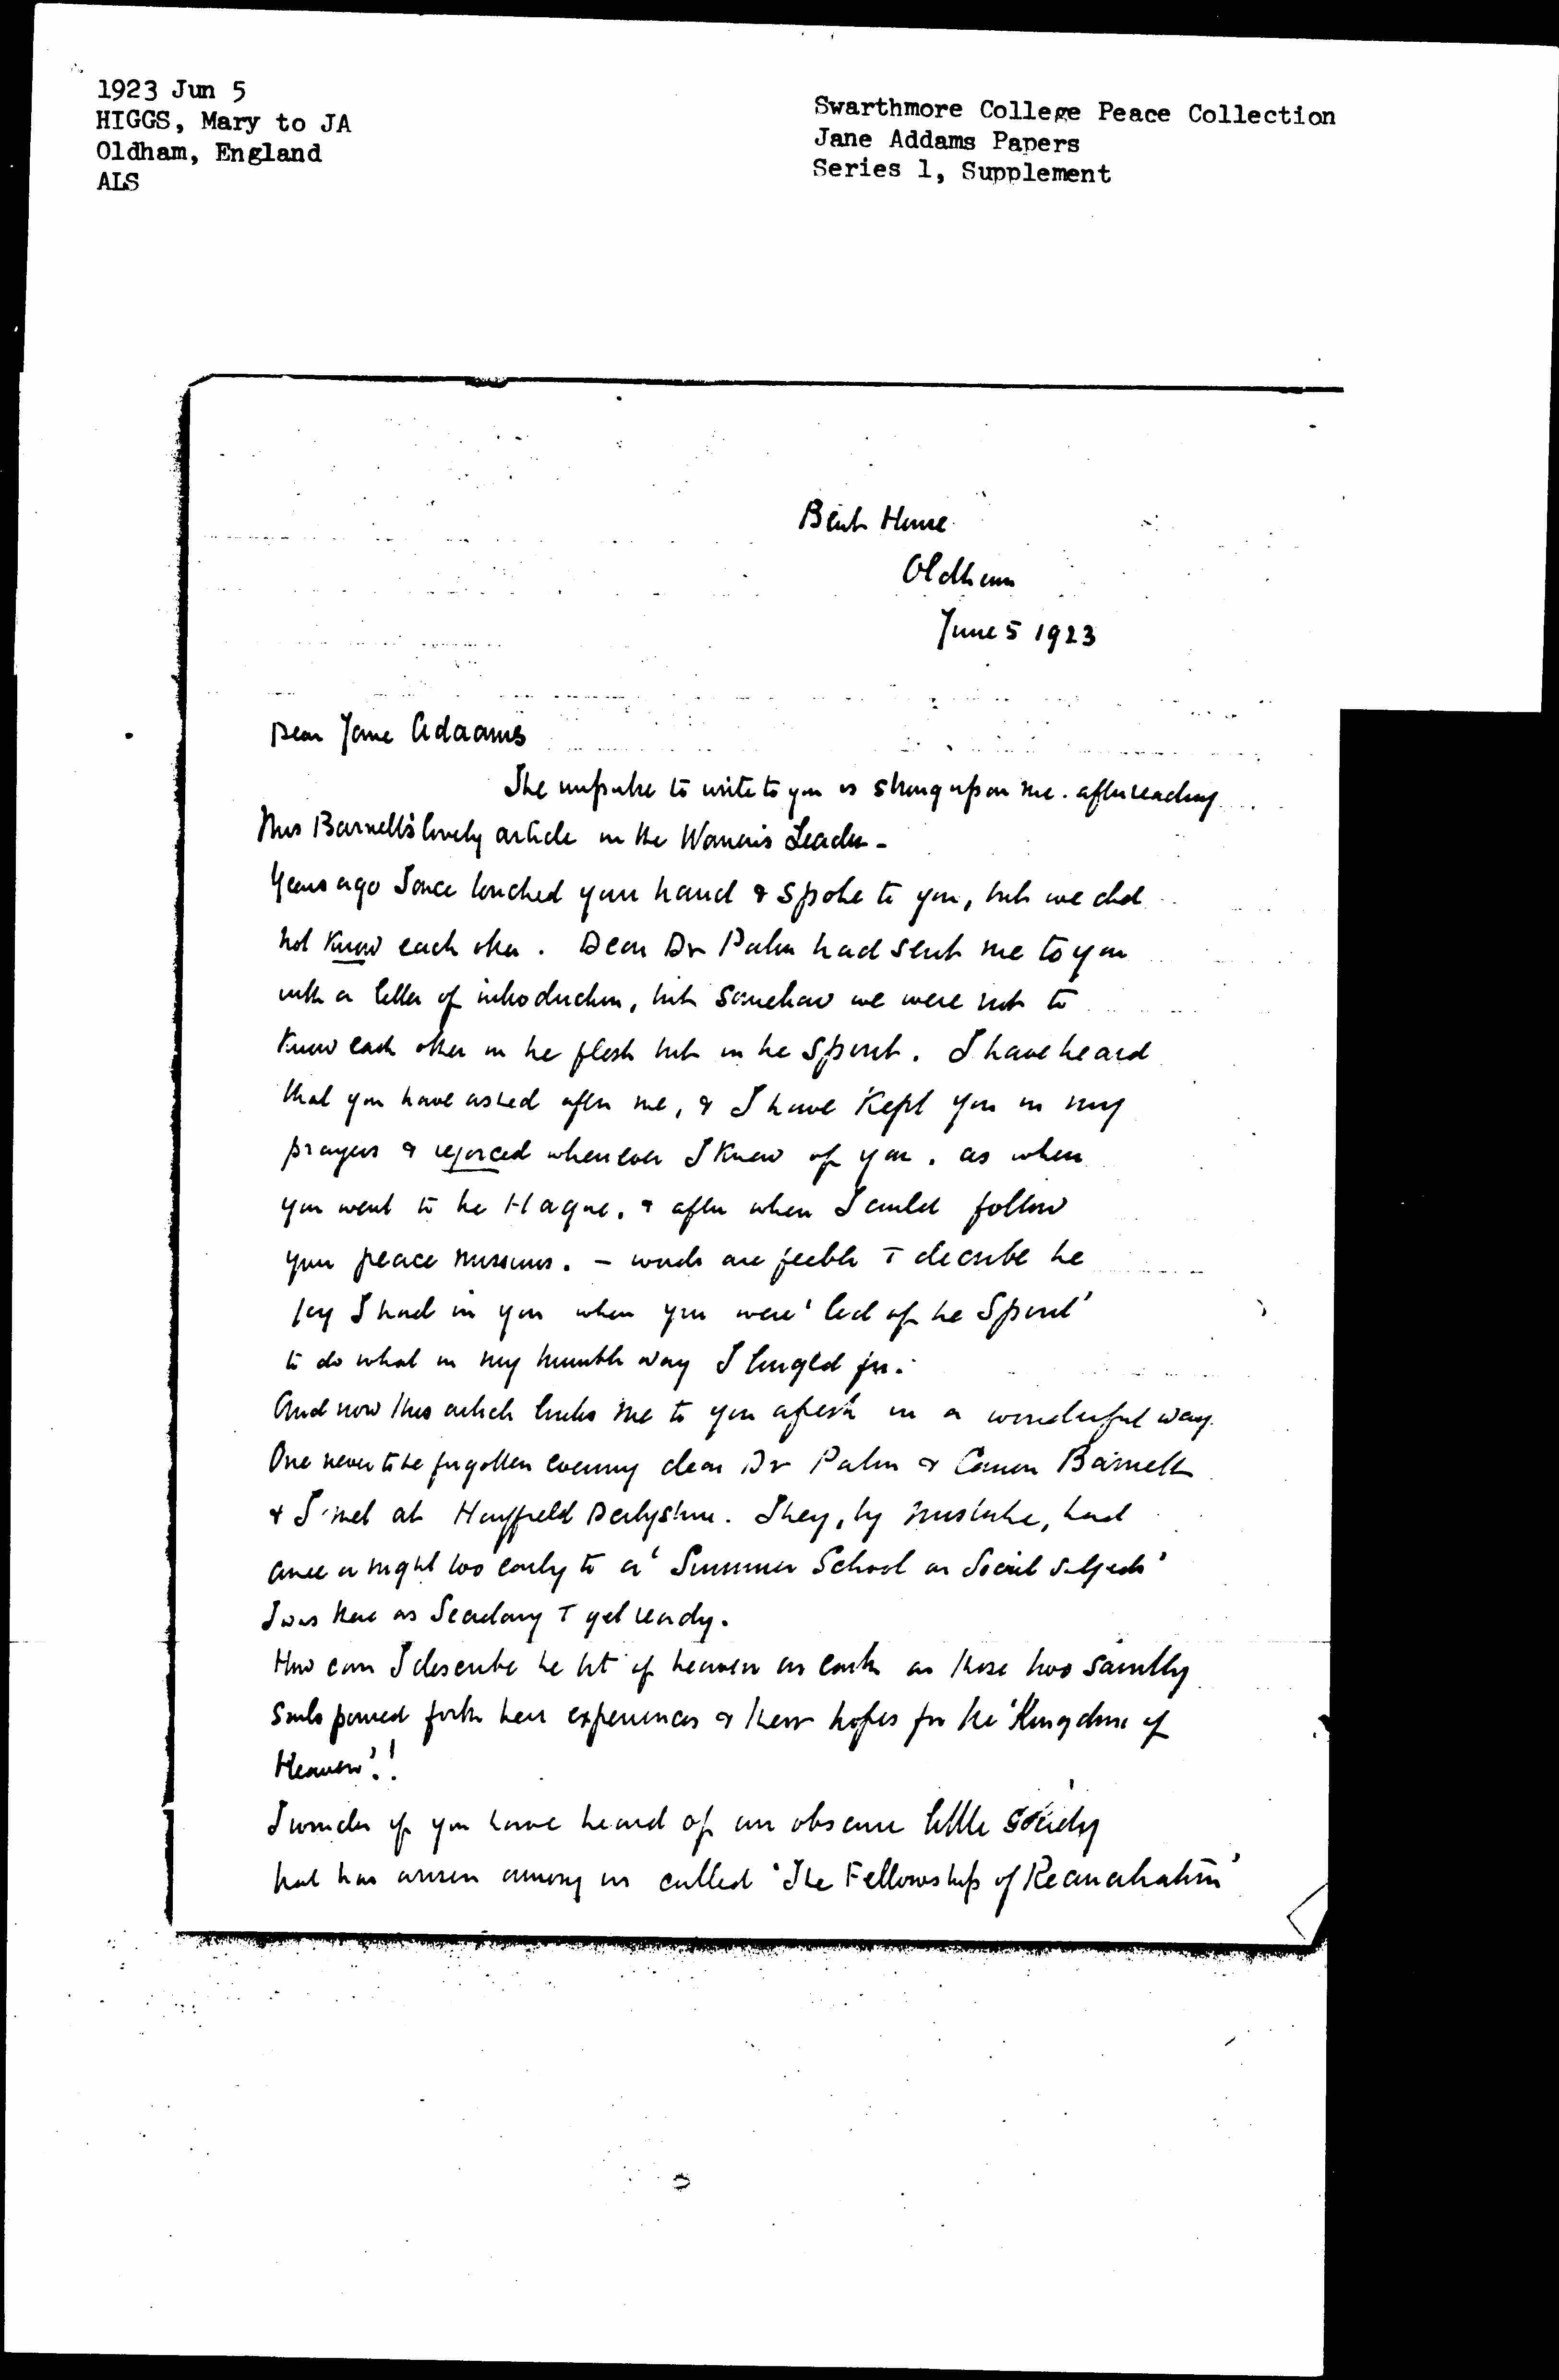 1923 Jun 5
HIGGS, Mary to JA
Oldham, England
ALS
Swarthmore College Peace Collection
Jane Addams Papers
Series 1, Supplement
Bent House
Oldham
June 5 1923
Dear Jane Adaams
The impulse to write to you is strong upon me. after reading
Mrs Barnett's lovely article in the Woman's Leader -
Years ago I once touched your hand & spoke to you, but we did
not know each other. Dear Dr Paton had sent me to you
with a letter of introduction, but somehow we were not to
know each other in he flesh but in he spirit. I have heard
that you have asked after me, & I have kept you in my
prayers & rejoiced whenever I knew of you. as when
you went to he Hague. & after when I could follow
your peace missions. - words are feeble to describe he
joy I had in you when you were 'led of he Spirit'
to do what in my humble way I longed for.
And now this article links me to you afresh in a wonderful way.
One never to be forgotten evening dear Dr Paton & Canon Barnett
& I met at Hayfield Derbyshire. They, by mistake, had
come a night too early to a 'Summer School on Social Subjects'
I was there as Secretary to get ready.
How can I describe he bit of heaven on earth as those two saintly
souls poured forth their experiences & their hopes for the 'Kingdom of
Heaven'!
I wonder if you have heard of an obscure little society
that has arisen among us called 'The Fellowship of Reconciliation'